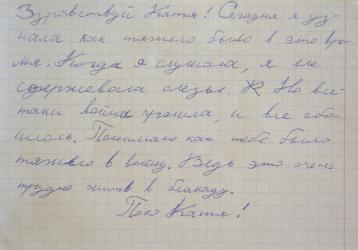 Здравствуй Катя! Сегодня я уз-
нала как тяжело было в это вре-
мя. Когда я слушала, я еле
сдерживала слезы. Но всё
таки война прошла, и все обо-
шлось. Понимаю как тебе было
тяжело в войну. Ведь это очень
трудно жить в блокаду.
Пока Катя!